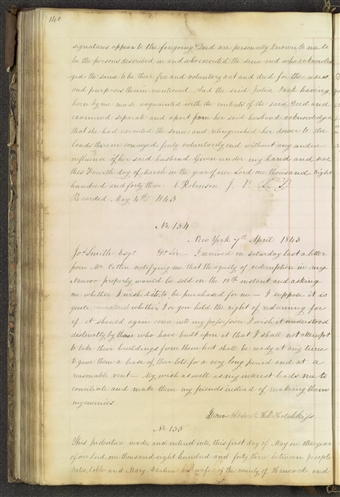 140
signatures appear to the foregoing Deed are personally known to me to
be the persons described in and who executed the same and who acknowled
ged the same to be their free and voluntary act and deed for the uses
and purposes therein mentioned. And the said having
been by me made acquainted with the contents of the said Deed and
examined separate and apart from her said husband acknowledged
that she had executed the same and relinquished her dower to the
lands therein conveyed freely voluntarily and without any undue
influence of her said husband Given under my hand and seal
this Fourth day of March in the year of our Lord one thousand Eight
hundred and forty three Robinson J. P. L. S.
Recorded May 4th 1843
No 134
New York 7th April 1843
Jos Smith Esqr Dr Sir I received on saturday last a letter
from Mr notifying me that the equity of redemption in my
property would be sold on the 10th instant and asking
me whether I wished it to be purchased for me — I suppose it is
quite whether I or you hold the right of redeeming for
if it should again come into my possession I wish it understood
distinctly by those who have built upon it that I shall not attempt
to take their buildings from them but shall be ready at any time
to give them a lease of their lots for a very long period and at a
reasonable rent — My wish as well as my interest leads me to
conciliate and make them my friends instead of making them
my enemies
Yours
No 135
This indenture made and entered into this first day of May in the year
of our Lord one thousand eight hundred and forty three between
and Mary his wife of the county of Hancock and